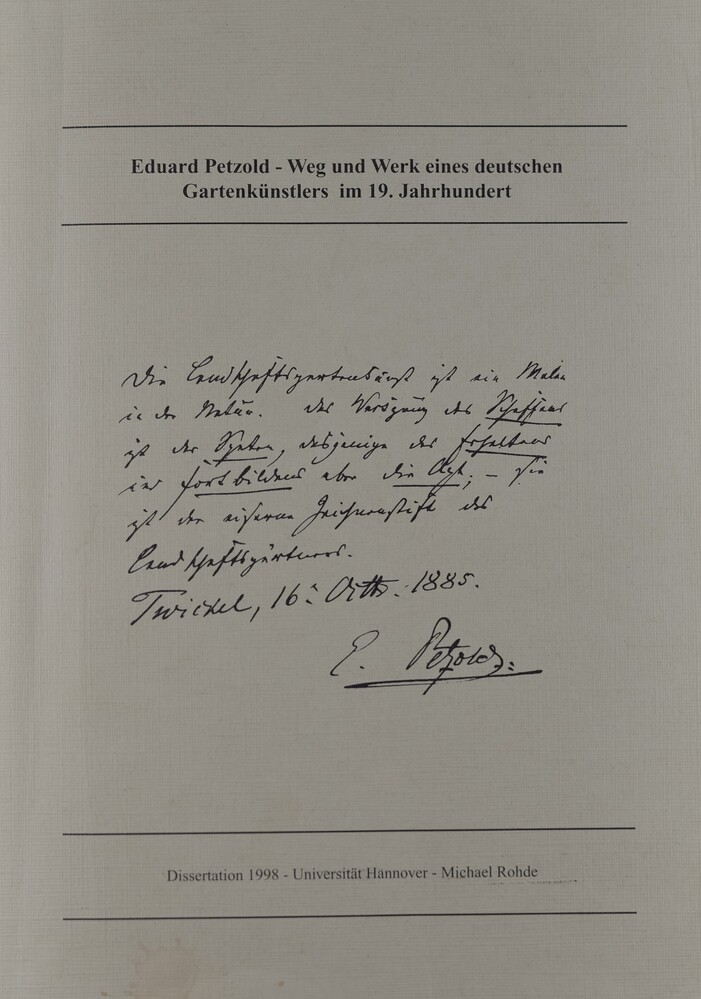 Eduard Petzold - Weg und Werk eines deutschen
Gartenkünstlers im 19. Jahrhundert
Die Landschaftsgartenkunst ist ein Malen
in der Natur. Das Werkzeug des Schaffens
ist der Spaten, dasjenige des Erhaltens
und Fortbildens aber die Axt; – sie
ist der eiserne Zeichenstift des
Landschaftsgärtners.
Twickel, 16 Octbr. 1885.
E. Petzold.
Dissertation 1998 - Universität Hannover - Michael Rohde